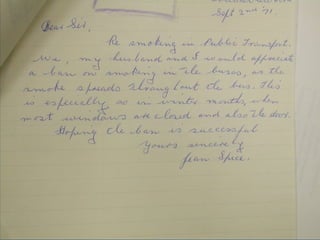 Sept 2nd '71.
Dear Sir,
Re smoking in Public Transport.
We, my husband and I would appreciate
a ban on smoking in the buses, as the
smoke spreads throughout the bus. This
is especially so in winter months, when
most windows are closed and also the door.
Hoping the ban is successful
Yours sincerely
Jean Spice.